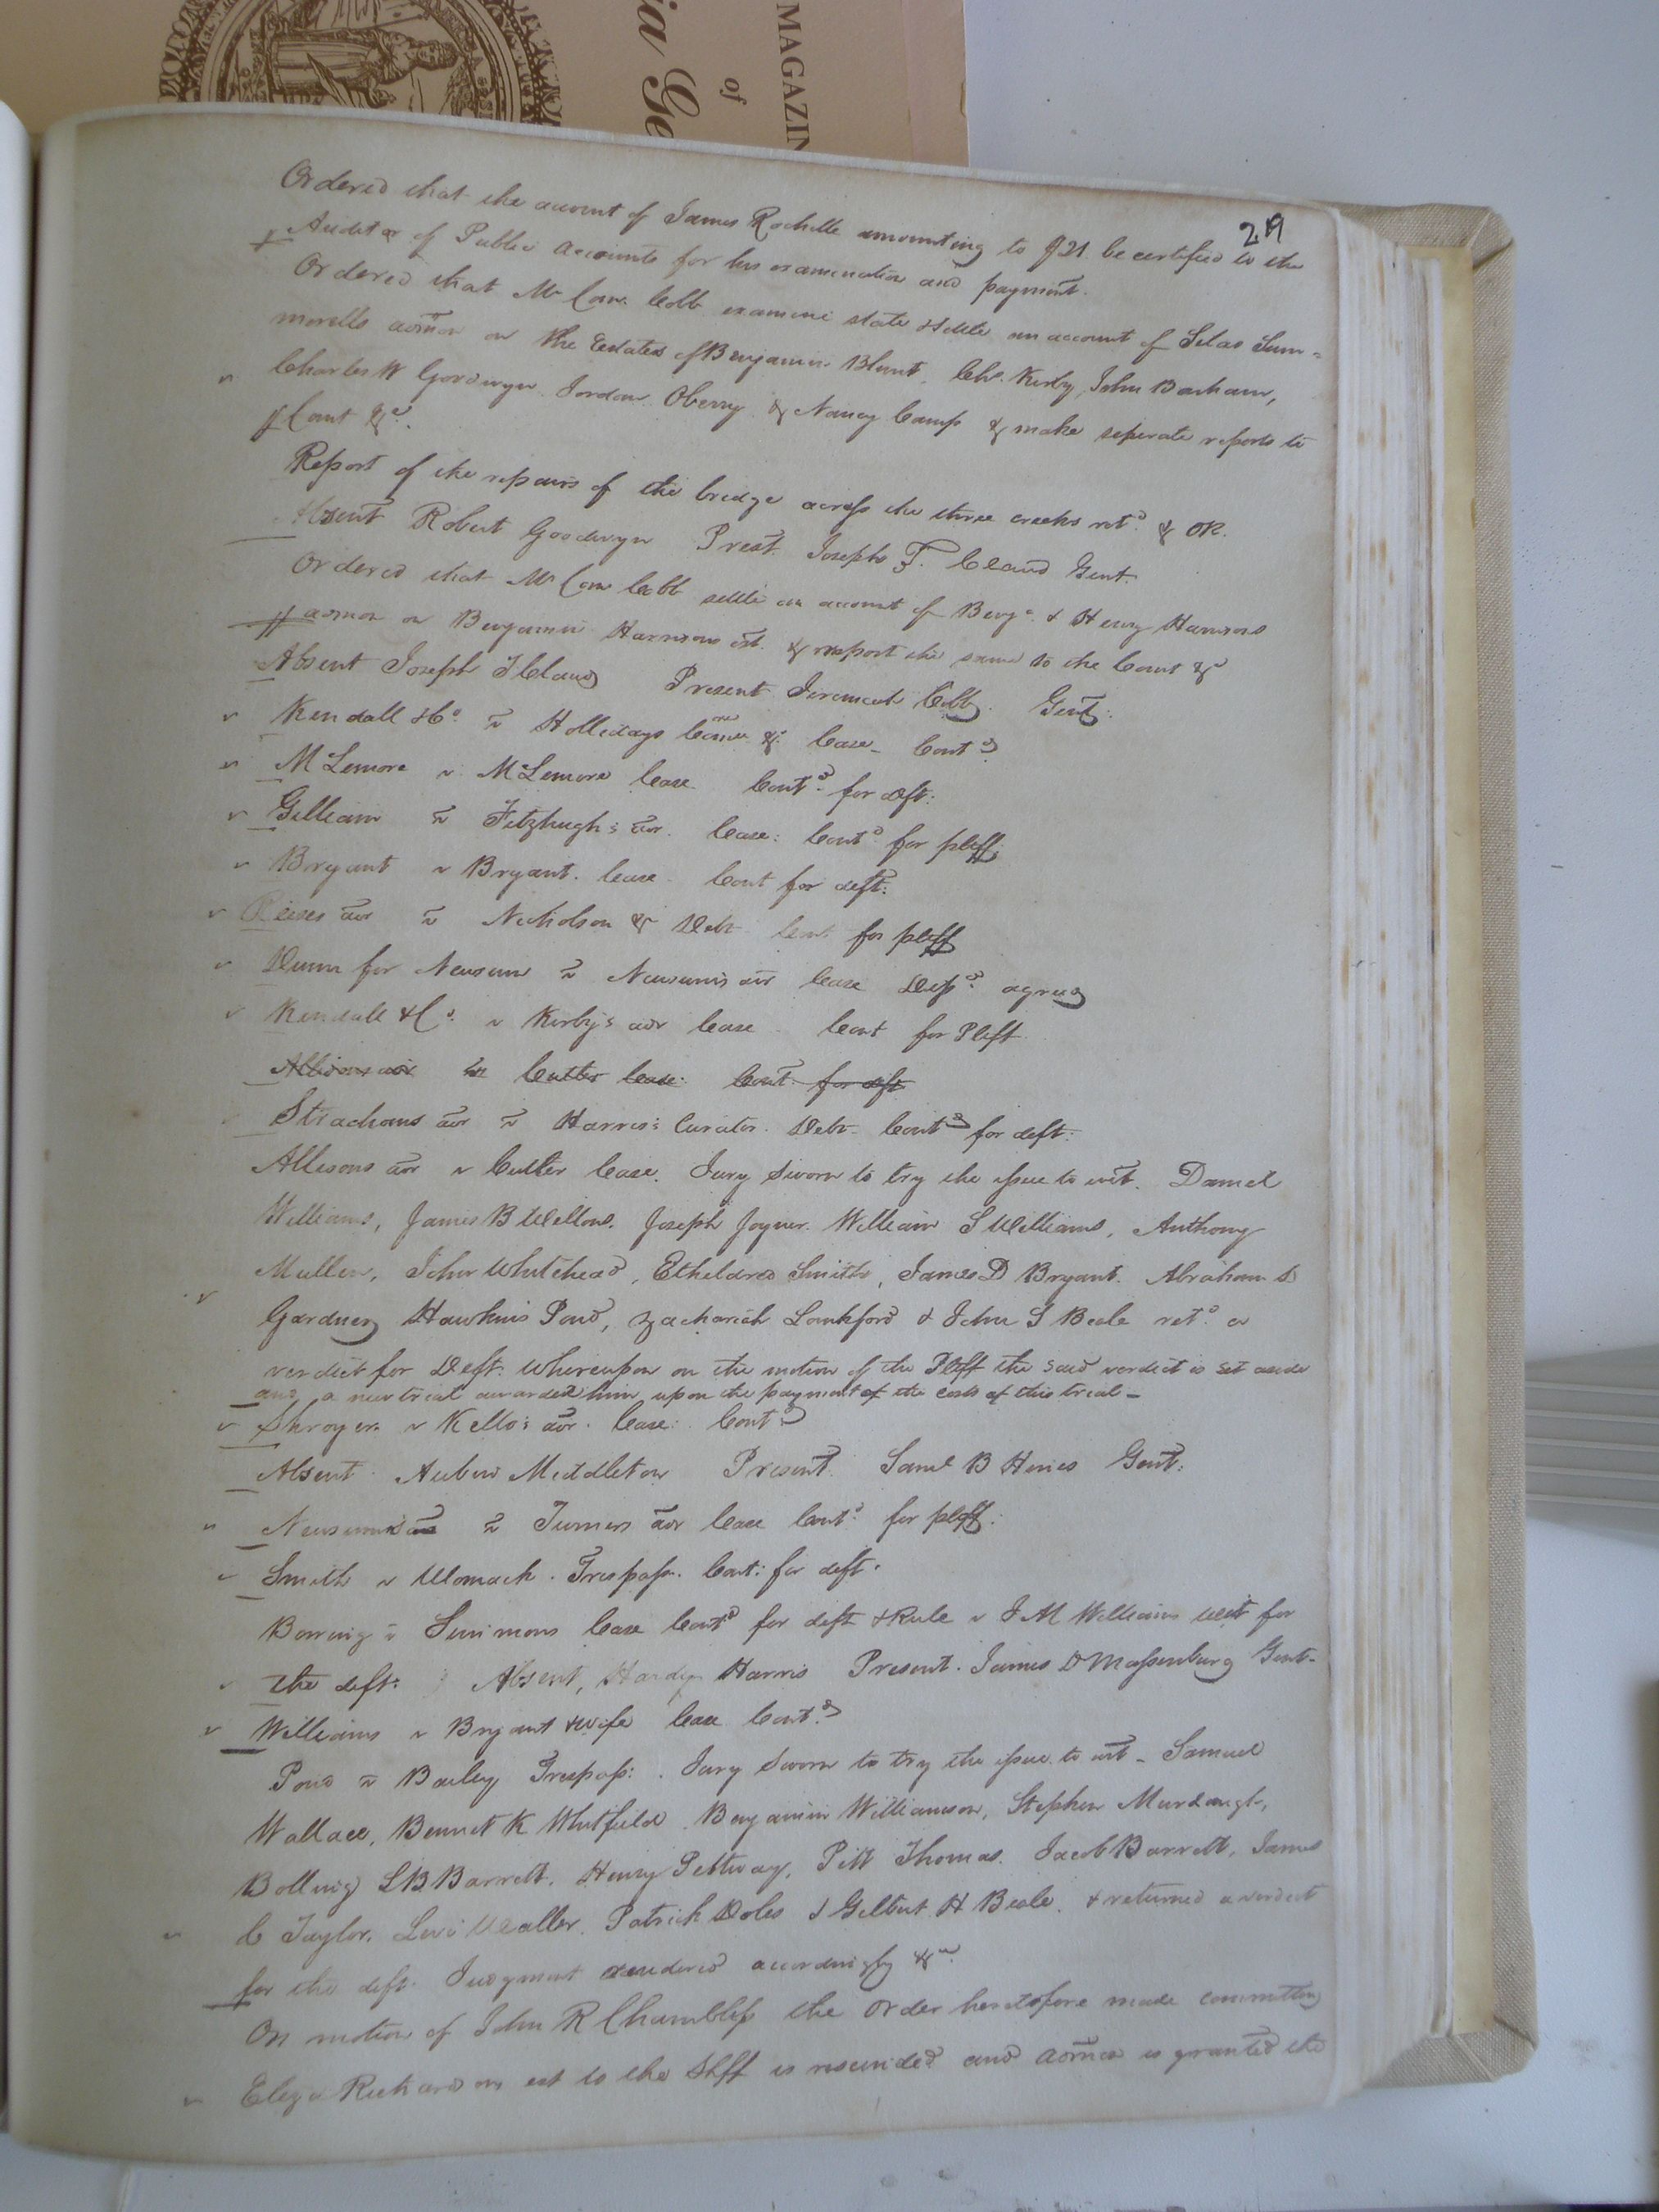 MAGAZIN
of
ia Ge
219
Ordered that the account of James Rochelle amounting to $21 be certified to the
Auditor of Public Accounts for his examination and payment.
Ordered that Mr Com. Cobb examine state & settle an account of Silas Sum=
merells admon on the Estates of Benjamin Blunt, Chs. Kirby, John Barham,
Charles W Goodwyn Jordan Oberry & Nancy Camp & make seperate reports to
Court &c.
Report of the repairs of the bridge across the three creeks retd. & OR.
Absent Robert Goodwyn Prest. Joseph T. Claud Gent.
Ordered that Mr Com Cobb settle an account of Benja. & Henry Harrisons
admon on Benjamin Harrisons est. & report the same to the Court &c
Absent Joseph T Claud Present Jeremiah Cobb. Gent.
Kendall & Co. v Hollidays &c. Case Contd
McLemore v McLemore Case Contd. for deft.
Gilliam v Fitzhugh's aor. Case: Contd for plff.
Bryant v Bryant. Case. Cont for deft.
Rieves aor v Nicholson & Debt Cont. for plff
Dunn for Newsum v Newsum's aor Case Disd. agreed
Kendall & Co. v Kirby's aor Case. Cont for Plff
Allisons aor v Cutler Case. Cont. for deft
Strachans aor v Harris's Curator. Debt Contd for deft.
Allisons aor v Cutler Case. Jury Sworn to try the issue to wit. Daniel
Williams, James B Wellons. Joseph Joyner. William S Williams, Anthony
Mullen, John Whitehead, Etheldred Smith, James D Bryant. Abraham D
Gardner, Hawkins Pond, Zachariah Lankford & John S Beale retd. a
verdict for Deft. Whereupon on the motion of the Plff the said verdict is set aside
and a new trial awarded him upon the payment of the costs of this trial -
Shroyer v Kello's aor. Case: Contd
Absent. Aubin Middleton Present. Saml B Hines Gent.
Newsum v Turners aor Case Contd. for plff.
Smith v Womack. Trespass. Cont: for deft.
v Simmons Case Contd for deft & Rule v J M Williams Wit for
the deft. Absent, Hardy Harris Present. James D Massenburg Gent.
Williams v Bryant & wife Case Contd
Pond v Bailey Trespass. Jury Sworn to try the issue to wit - Samuel
Wallace, Bennet K Whitfield Benjamin Williamson, Stephen Murdaugh,
Bolling LB Barrett, Henry Pettway, Pitt Thomas. Jacob Barrett, James
C Taylor. Levi Waller. Patrick Doles & Gilbert H Beale. & returned a verdict
for the deft. Judgment rendered accordingly &c.
On motion of John R Chambliss the order heretofore made committing
Eliza Richardson est to the Shff is rescinded and admon is granted the